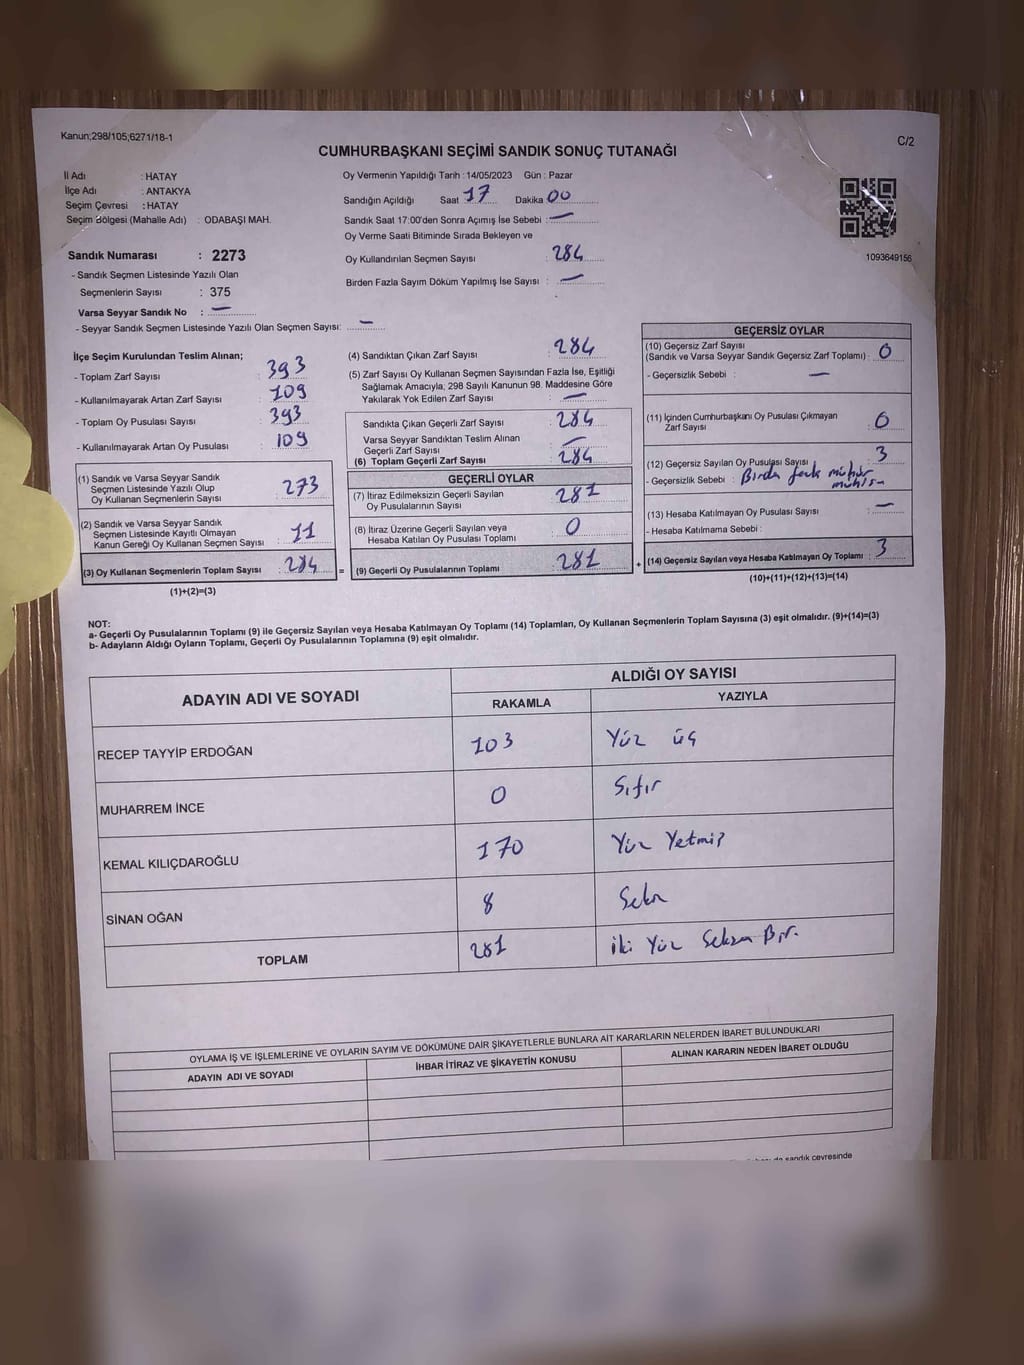 Kanun;298/105;6271/18-1
C/2
CUMHURBAŞKANI SEÇİMİ SANDIK SONUÇ TUTANAĞI
İl Adı : HATAY
İlçe Adı : ANTAKYA
Seçim Çevresi : HATAY
Seçim Bölgesi (Mahalle Adı) : ODABAŞI MAH.
Oy Vermenin Yapıldığı Tarih : 14/05/2023 Gün : Pazar
Sandığın Açıldığı Saat 17 Dakika 00
Sandık Saat 17:00'den Sonra Açımış İse Sebebi : —
Oy Verme Saati Bitiminde Sırada Bekleyen ve
Oy Kullandırılan Seçmen Sayısı : 284
Birden Fazla Sayım Döküm Yapılmış İse Sayısı : —
1093649156
Sandık Numarası : 2273
- Sandık Seçmen Listesinde Yazılı Olan
Seçmenlerin Sayısı : 375
Varsa Seyyar Sandık No : —
- Seyyar Sandık Seçmen Listesinde Yazılı Olan Seçmen Sayısı: —
İlçe Seçim Kurulundan Teslim Alınan;
- Toplam Zarf Sayısı : 393
- Kullanılmayarak Artan Zarf Sayısı : 109
- Toplam Oy Pusulası Sayısı : 393
- Kullanılmayarak Artan Oy Pusulası : 109
(1) Sandık ve Varsa Seyyar Sandık
Seçmen Listesinde Yazılı Olup
Oy Kullanan Seçmenlerin Sayısı : 273
(2) Sandık ve Varsa Seyyar Sandık
Seçmen Listesinde Kayıtlı Olmayan
Kanun Gereği Oy Kullanan Seçmen Sayısı : 11
(3) Oy Kullanan Seçmenlerin Toplam Sayısı : 284 =
(1)+(2)=(3)
(4) Sandıktan Çıkan Zarf Sayısı : 284
(5) Zarf Sayısı Oy Kullanan Seçmen Sayısından Fazla İse, Eşitliği
Sağlamak Amacıyla; 298 Sayılı Kanunun 98. Maddesine Göre
Yakılarak Yok Edilen Zarf Sayısı : —
Sandıkta Çıkan Geçerli Zarf Sayısı : 284
Varsa Seyyar Sandıktan Teslim Alınan
Geçerli Zarf Sayısı : —
(6) Toplam Geçerli Zarf Sayısı : 284
GEÇERLİ OYLAR
(7) İtiraz Edilmeksizin Geçerli Sayılan
Oy Pusulalarının Sayısı : 281
(8) İtiraz Üzerine Geçerli Sayılan veya
Hesaba Katılan Oy Pusulası Toplamı : 0
(9) Geçerli Oy Pusulalarının Toplamı : 281 +
GEÇERSİZ OYLAR
(10) Geçersiz Zarf Sayısı
(Sandık ve Varsa Seyyar Sandık Geçersiz Zarf Toplamı) : 0
- Geçersizlik Sebebi : —
(11) İçinden Cumhurbaşkanı Oy Pusulası Çıkmayan
Zarf Sayısı : 0
(12) Geçersiz Sayılan Oy Pusulası Sayısı : 3
- Geçersizlik Sebebi : Birden fazla mühür
(13) Hesaba Katılmayan Oy Pusulası Sayısı : —
- Hesaba Katılmama Sebebi :
(14) Geçersiz Sayılan veya Hesaba Katılmayan Oy Toplamı : 3
(10)+(11)+(12)+(13)=(14)
NOT:
a- Geçerli Oy Pusulalarının Toplamı (9) ile Geçersiz Sayılan veya Hesaba Katılmayan Oy Toplamı (14) Toplamları, Oy Kullanan Seçmenlerin Toplam Sayısına (3) eşit olmalıdır. (9)+(14)=(3)
b- Adayların Aldığı Oyların Toplamı, Geçerli Oy Pusulalarının Toplamına (9) eşit olmalıdır.
ADAYIN ADI VE SOYADI ALDIĞI OY SAYISI
RAKAMLA YAZIYLA
RECEP TAYYİP ERDOĞAN 103 Yüz üç
MUHARREM İNCE 0 Sıfır
KEMAL KILIÇDAROĞLU 170 Yüz Yetmiş
SİNAN OĞAN 8 Sekiz
TOPLAM 281 İki Yüz Seksen Bir.
OYLAMA İŞ VE İŞLEMLERİNE VE OYLARIN SAYIM VE DÖKÜMÜNE DAİR ŞİKAYETLERLE BUNLARA AİT KARARLARIN NELERDEN İBARET BULUNDUKLARI
ADAYIN ADI VE SOYADI İHBAR İTİRAZ VE ŞİKAYETİN KONUSU ALINAN KARARIN NEDEN İBARET OLDUĞU
sandık çevresinde